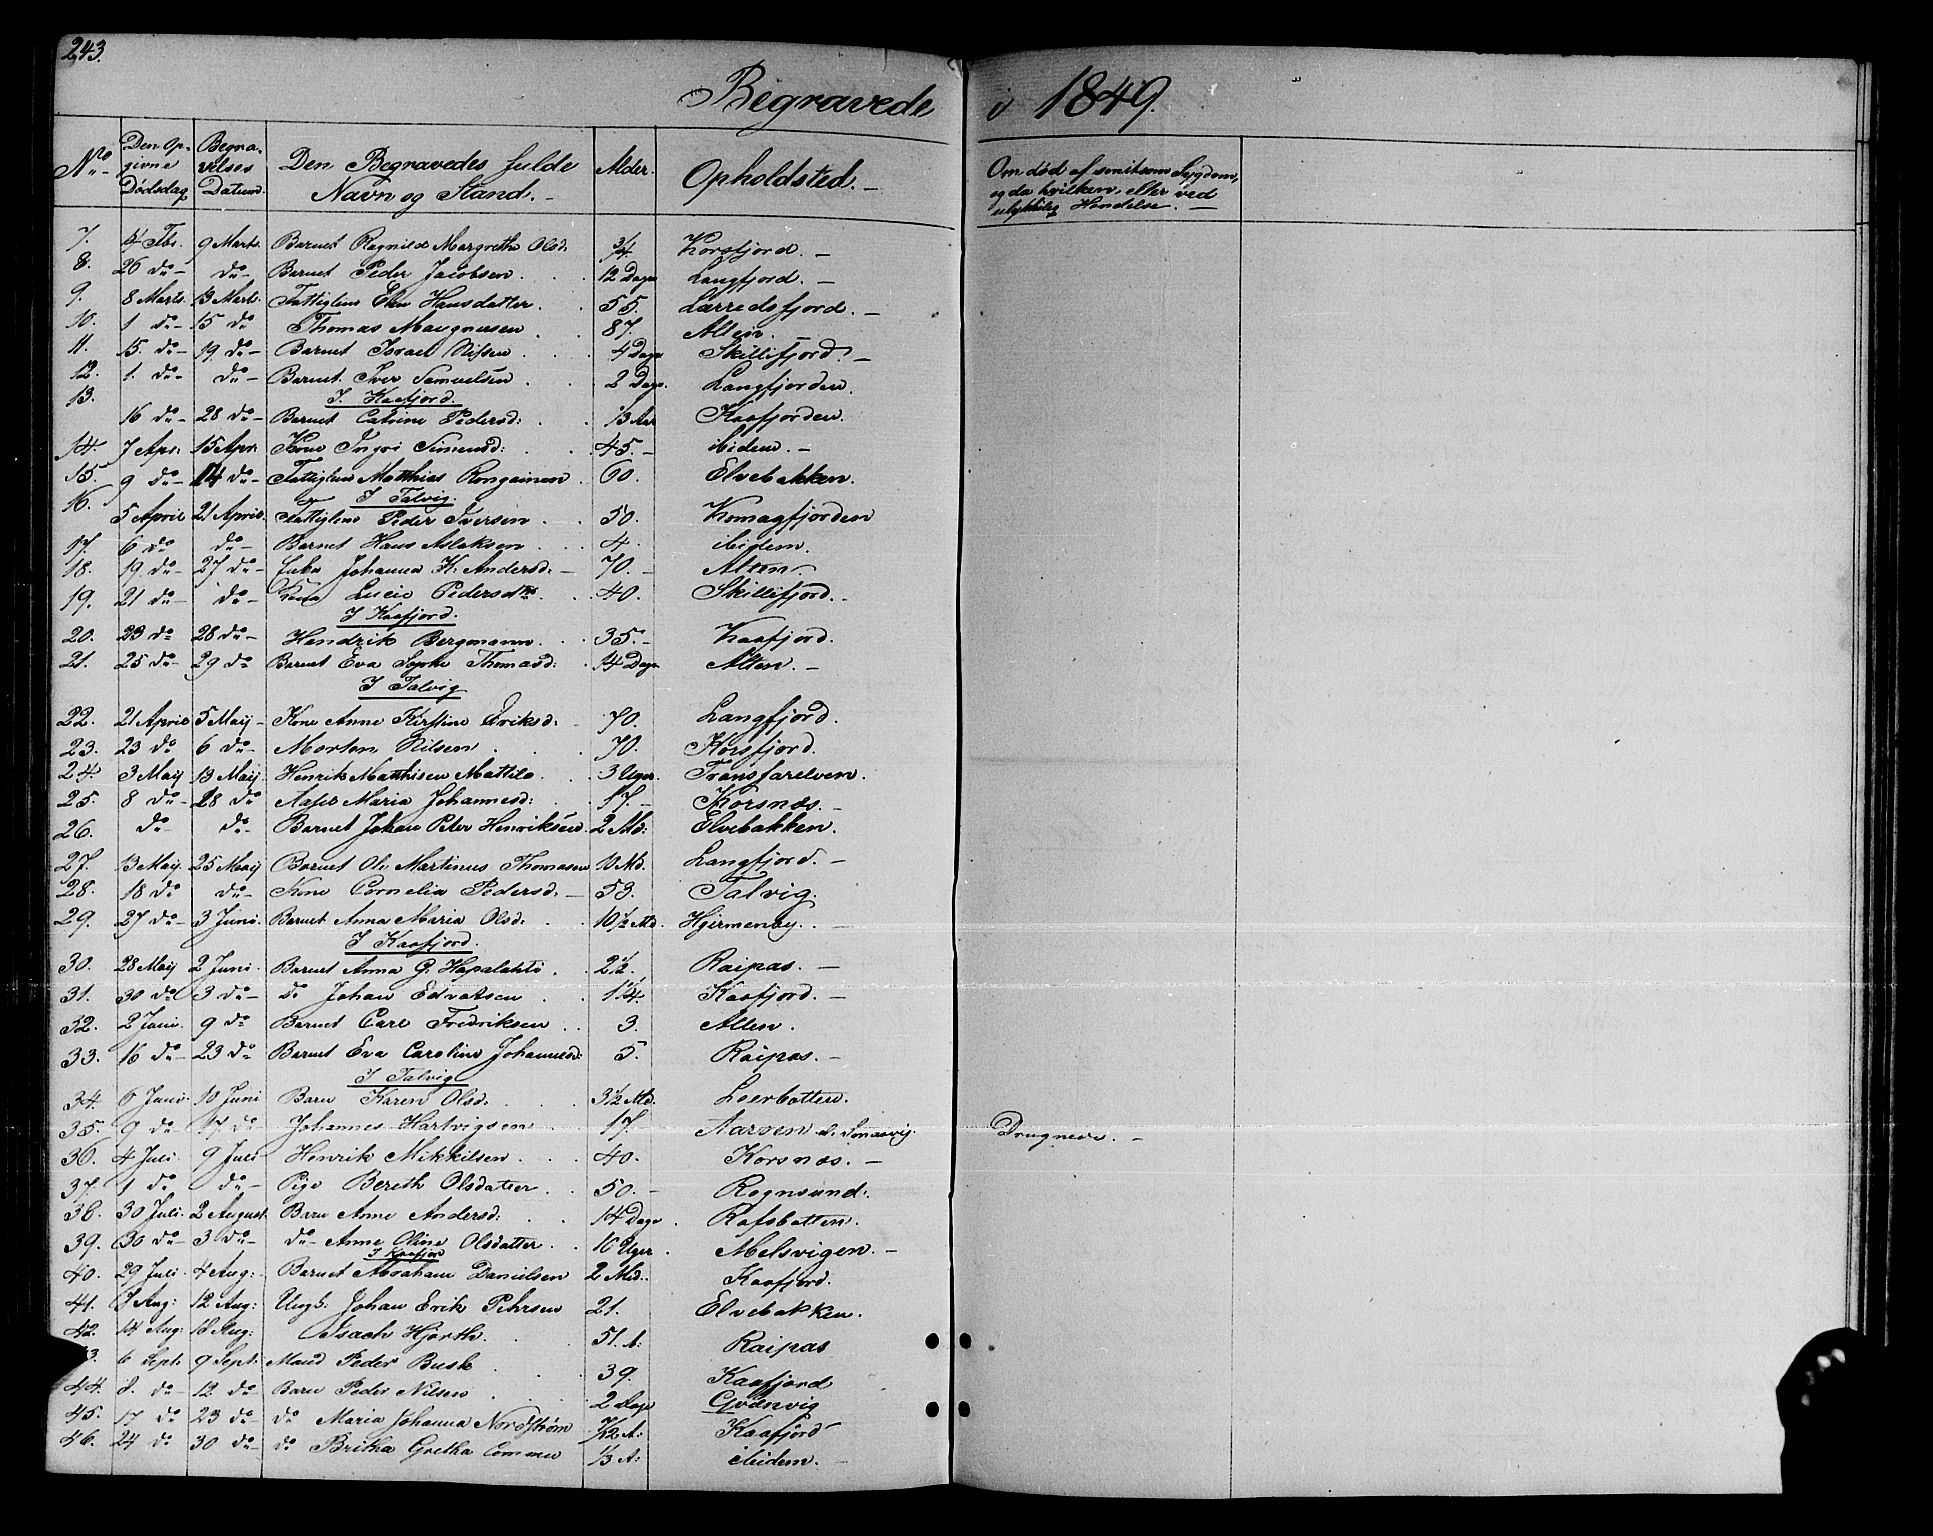 243.
Begravede i 1849.
No Den Opgivne Dødsdag Begravelses Datum. Den Begravedes fulde Navn og Stand. Alder. Opholdsted. Om død af smitsom Sygdom, og da hvilken, eller ved ulykkelig Hændelse.
7. 4 Fbr. 9 Marts. Barnet Ragnild Margrethe Olsd. 3/4. Korsfjord.
8. 26 do do Barnet Peder Jacobsen. 12 Dage Langfjord.
9. 8 Marts. 13 Marts. Fattiglem Elen Hansdatter. 55. Lerredsfjord.
10. 1 do 15 do Thomas Maugnusen 87. Alten.
11. 15. do 19. do Barnet Israel Nilsen 4 Dage Skillifjord.
12. 1. do do Barnet Iver Samuelsen 2 Dage. Langfjorden
I. Kaafjord.
13. 16 do 28 do Barnet Catrine Pedersd: 1/3 Aar Kaafjorden.
14. 7 Apr: 15 Apr: Kone Ingri Simensd: 45. ibidem.
15. 9 do 14 do Fattiglem Matthias Rongainen 60. Elvebakken.
I Talvig.
16. 5 April 21 April. Fattiglem Peder Iversen 50. Komagfjorden
17. 6 do do Barnet Hans Aslaksen 4. ibidem.
18. 19. do 27 do Enke Johanna K. Andersd: 70. Alten.
19. 21 do do Kone Lucie Pedersdtr. 40. Skillifjord.
I Kaafjord.
20. 23 do 28 do Hendrik Bergmann. 35. Kaafjord.
21. 25 do 29 do Barnet Eva Sophie Thomasd: 14 Dage Alten.
I Talvig
22. 21 April 5 Maij Kone Anne Kirstine Eriksd: 70. Langfjord.
23. 23 do 6 do Morten Nilsen 70. Korsfjord.
24. 3 Maij 13 Maij Henrik Matthisen Mattila 3 Uger. Transfarelven.
25. 8 do 28 do Maria Johannesd: 17. Korsnæs.
26. do do Barnet Johan Peter Henriksen 2 Md: Elvebakken.
27. 13 Maij. 25 Maij Barnet Ole Martinus Thomasen 10 Md. Langfjord.
28. 18 do do Kone Cornelia Pedersd. 53. Talvig
29. 27 do 3 Juni. Barnet Anna Maria Olsd: 10 1/2 Md. Hjemmenby.
I Kaafjord.
30. 28 Maij 2 Juni. Barnet Anna G. Hapalahti 2 1/2. Raipas.
31. 30 do 3 do do Johan Edvarsen 1 1/4. Kaafjord.
32. 2 Juni. 9 do Barnet Carl Fredriksen 3. Alten.
33. 16 do 23 do Barnet Eva Caroline Johannesd: 5. Raipas.
I Talvig
34. 6 Juni. 10 Juni Barn Karen Olsd. 3 1/2 Md. Leerbotten.
35. 9 do 17 do Johannes Hartvigsen 17. Aarøen Drugnede.
36. 4 Juli. 9 Juli Henrik Mikkilsen 40. Korsnæs.
37. 1 do do Pige Bereth Olsdatter 50. Rognsund.
38. 30 Juli. 2 August. Barn Anne Andersd: 14 Dage Rafsbotten.
39. 30 do 3 do do Anne Oline Olsdatter 16 Uger Melsvigen.
I Kaafjor
40. 29 Juli 4 Aug: Barnet Abraham Danielsen 2 Md. Kaafjord.
41. 7 Aug: 12 Aug: Ungk. Johan Erik Pehrsen 21. Elvebakken.
42. 14 Aug: 18 Aug: Isach Hjorth. 51. A: Raipas
3. 6 Sept: 9 Sept: Mand Peder Busk 39. Kaafjord
44. 8. do 12 do Barn Peder Nilsen 2 Dage Qvænvig
45. 17 do 23 do do Maria Johanna Nordstrøm 7/12 A: Kaafjord
46. 24 do 30 do do Britha Gretha 1/3 A: ibidem.